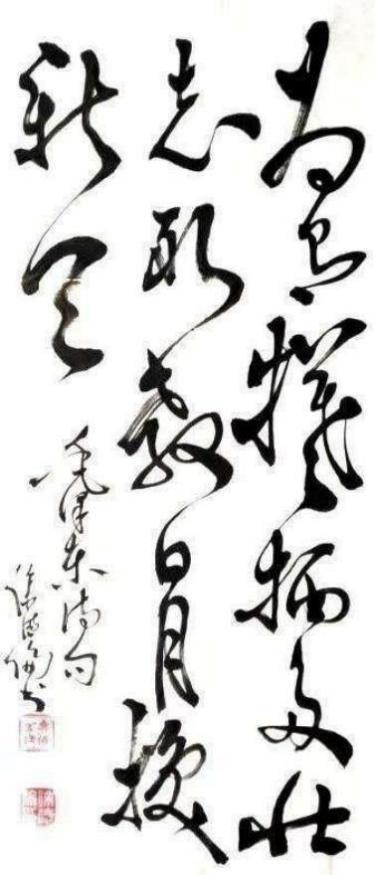 为有犧牺多壮
志敢教日月换
新天
毛泽东诗句
书